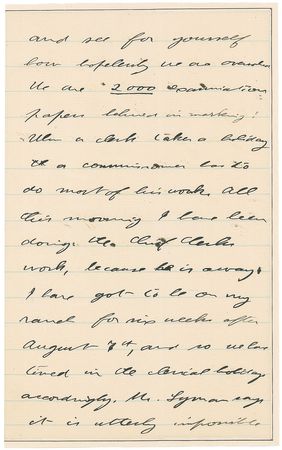 and see for yourself
how hopelessly we are overrun
We are 2000 examination
papers behind in marking!
When a clerk takes a holiday
a commissioner has to
do most of his work. All
this morning I have been
doing the Chief Clerks
work, because he is away.
I have got to be on my
ranch for six weeks after
August 7th, and so we have
timed in the clerical holidays
accordingly. Mr. Lyman says
it is utterly impossible